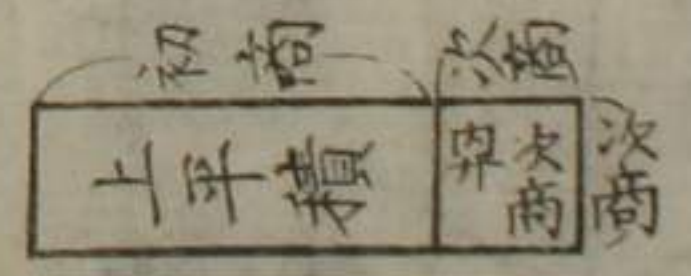 初商
次商
上平積
次商
次商